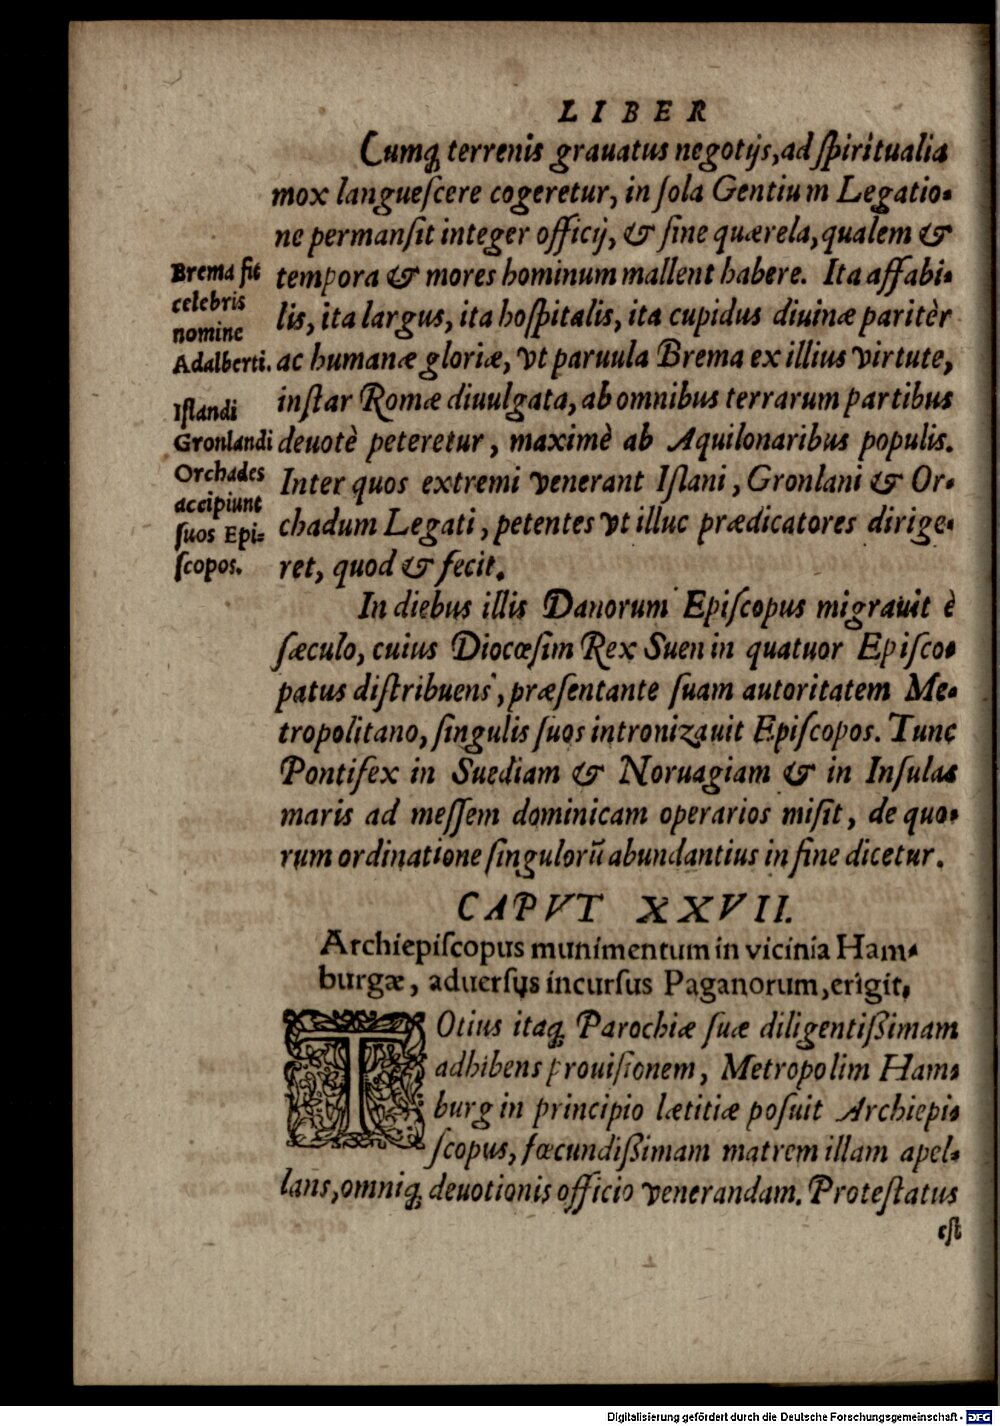 LIBER
Cumq́; terrenis grauatus negotijs, ad ſpiritualia
mox langueſcere cogeretur, in ſola Gentium Legatio-
ne permanſit integer officij, & ſine quærela, qualem &
tempora & mores hominum mallent habere. Ita affabi-
lis, ita largus, ita hoſpitalis, ita cupidus diuinæ paritèr
ac humanæ gloriæ, vt paruula Brema ex illius virtute,
inſtar Romæ diuulgata, ab omnibus terrarum partibus
deuotè peteretur, maximè ab Aquilonaribus populis.
Inter quos extremi venerant Iſlani, Gronlani & Or-
chadum Legati, petentes vt illuc prædicatores dirige-
ret, quod & fecit.
Brema fit
celebris
nomine
Adalberti.
Iſlandi
Gronlandi
Orchades
accipiunt
ſuos Epi-
ſcopos.
In diebus illis Danorum Epiſcopus migrauit è
ſæculo, cuius Diocœſim Rex Suenin quatuor Epiſco-
patus diſtribuens, præſentante ſuam autoritatem Me-
tropolitano, ſingulis ſuos intronizauit Epiſcopos. Tunc
Pontifex in Suediam & Noruagiam & in Inſulas
maris ad meſſem dominicam operarios miſit, de quo-
rum ordinatione ſingulorū abundantius in fine dicetur.
CAPVT XXVII.
Archiepiſcopus munimentum in vicinia Ham-
burgæ, aduerſus incurſus Paganorum, erigit.
TOtius itaq́; Parochiæ ſuæ diligentißimam
adhibens prouiſionem, Metropolim Ham-
burg in principio lætitiæ poſuit Archiepi-
ſcopus, fœcundißimam matrem illam apel-
lans, omniq́; deuotionis officio venerandam. Proteſtatus
eſt
Digitalisierung gefördert durch die Deutsche Forschungsgemeinschaft - DFG